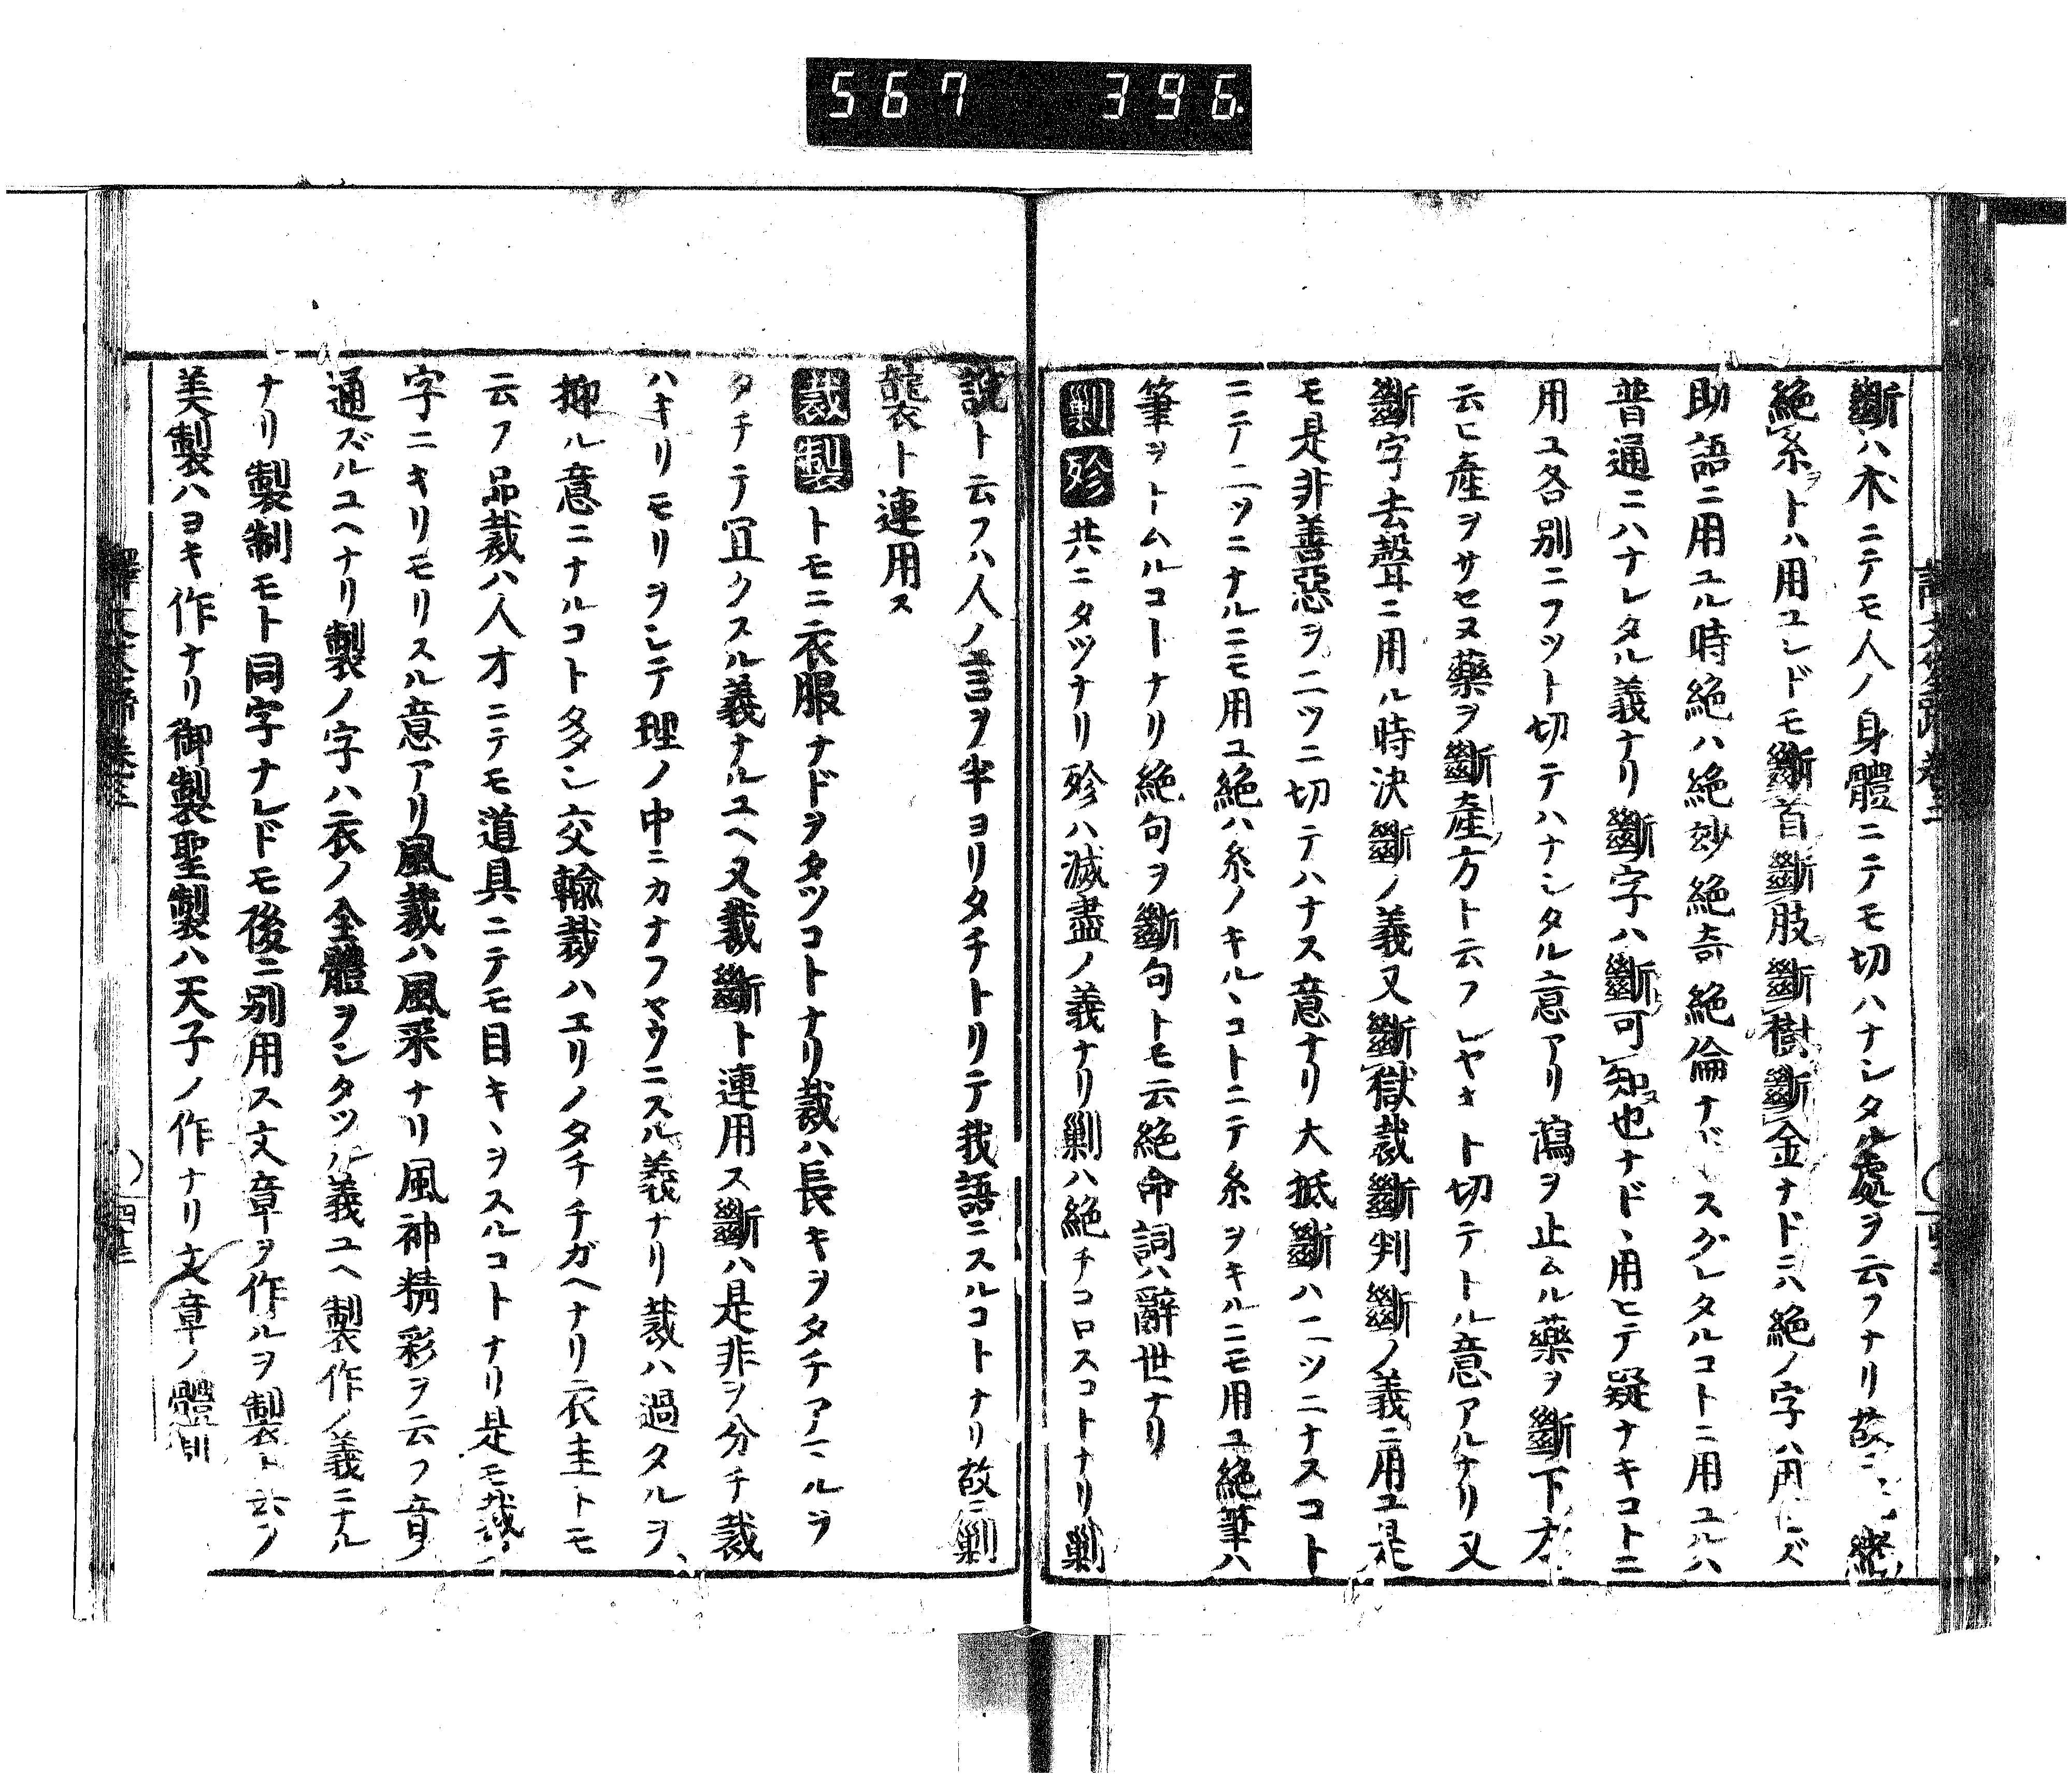 567 396
斷ハ木ニテモ人ノ身體ニテモ切ハナシタル處ヲ云フナリ故ニ
絶糸トハ用ユレドモ斷首斷肢斷樹斷金ナドニハ絶ノ字ハ用ヒズ
助語ニ用ユル時絶ハ絶玅絶奇絶倫ナドヽスグレタルコトニ用ユルハ
普通ニハナレタル義ナリ斷字ハ斷可知也ナドヽ用ヒテ疑ナキコトニ
用ユ各別ニフツト切テハナシタル意アリ瀉ヲ止ムル藥ヲ斷下方
云ヒ產ヲサセヌ藥ヲ斷產方ト云フシヤキト切テトル意アルナリ又
斷字去聲ニ用ル時決斷ノ義又斷獄裁斷判斷ノ義ニ用ユ是
モ是非善惡ヲ二ツニ切テハナス意ナリ大抵斷ハ二ツニナスコト
ニテ二ツニナルニモ用ユ絶ハ糸ノキルヽコトニテ糸ヲキルニモ用ユ絶筆ハ
筆ヲトムルコトナリ絶句ヲ斷句トモ云絶命詞ハ辭世ナリ
剿殄共ニタツナリ殄ハ滅盡ノ義ナリ剿ハ絶チコロスコトナリ剿
說ト云フハ人ノ言ヲ半ヨリタチトリテ我語ニスルコトナリ故ニ剿
襲ト連用ス
裁製トモニ衣服ナドヲタツコトナリ裁ハ長キヲタチアマルヲ
タチテ宜クスル義ナルユヘ又裁斷ト連用ス斷ハ是非ヲ分チ裁
ハキリモリヲシテ理ノ中ニカナフヤウニスル義ナリ裁ハ過タルヲ
抑ル意ニナルコト多シ交輸裁ハエリノタチチガヘナリ衣圭トモ
云フ品裁ハ人才ニテモ道具ニテモ目キヽヲスルコトナリ是モ裁ノ
字ニキリモリスル意アリ風裁ハ風采ナリ風神精彩ヲ云フ音
通ズルユヘナリ製ノ字ハ衣ノ全體ヲシタツル義ユヘ製作ノ義ニナル
ナリ製制モト同字ナレドモ後ニ別用ス文章ヲ作ルヲ製ト云フ
美製ハヨキ作ナリ御製聖製ハ天子ノ作ナリ文章ノ體制